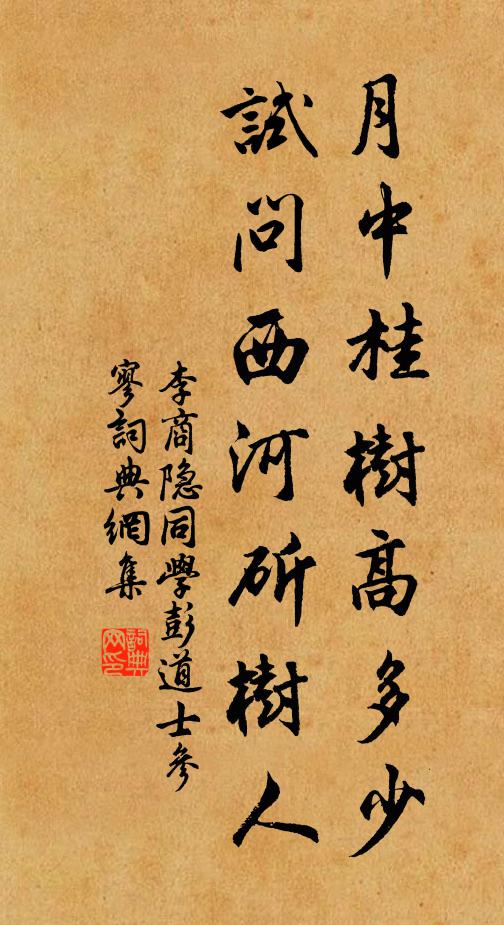 月中桂樹高多少
試問西河斫樹人
李商隐同學彭道士參
寥詞典網集
詞典
网印